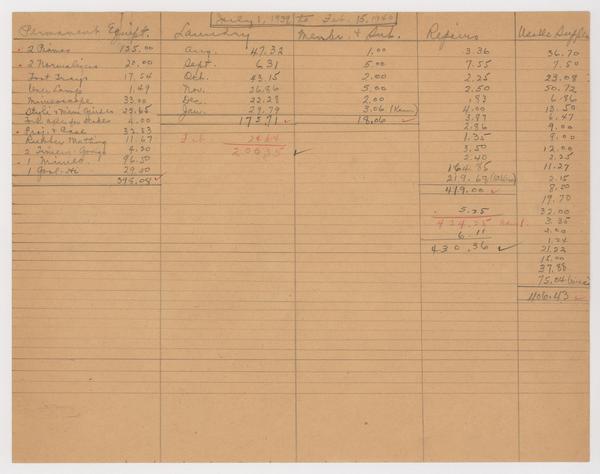 July 1, 1939 to Feb. 15, 1940
Permanent Equipt.
2 Primes 125.00
2 20.00
Foot Trays 17.54
1.49
Mimeoscope 33.00
Style & Mimi Guides 22.65
4.00
Proj. & Case 32.83
Rubber Matting 11.67
2 Gongs 4.20
1 Mimeo. 96.50
1 29.00
398.08
Laundry
Aug. 47.32
Sept. 6.31
Oct. 43.15
Nov. 26.86
Dec. 22.28
Jan. 29.79
175.71
Feb
206.35
Membr. & Sub.
1.00
5.00
2.00
5.00
2.00
3.06
18.06
Repairs
3.36
7.55
2.25
2.50
.83
4.00
3.87
2.86
1.35
3.50
2.40
164.85
219.68
419.00
5.25
424.25
6.11
430.36
Useable Supplies
36.70
7.50
23.08
50.72
6.86
13.50
6.47
9.00
9.00
12.00
2.25
11.27
2.15
8.50
19.70
32.00
3.35
2.00
1.24
21.22
15.00
37.88
75.04
1106.43